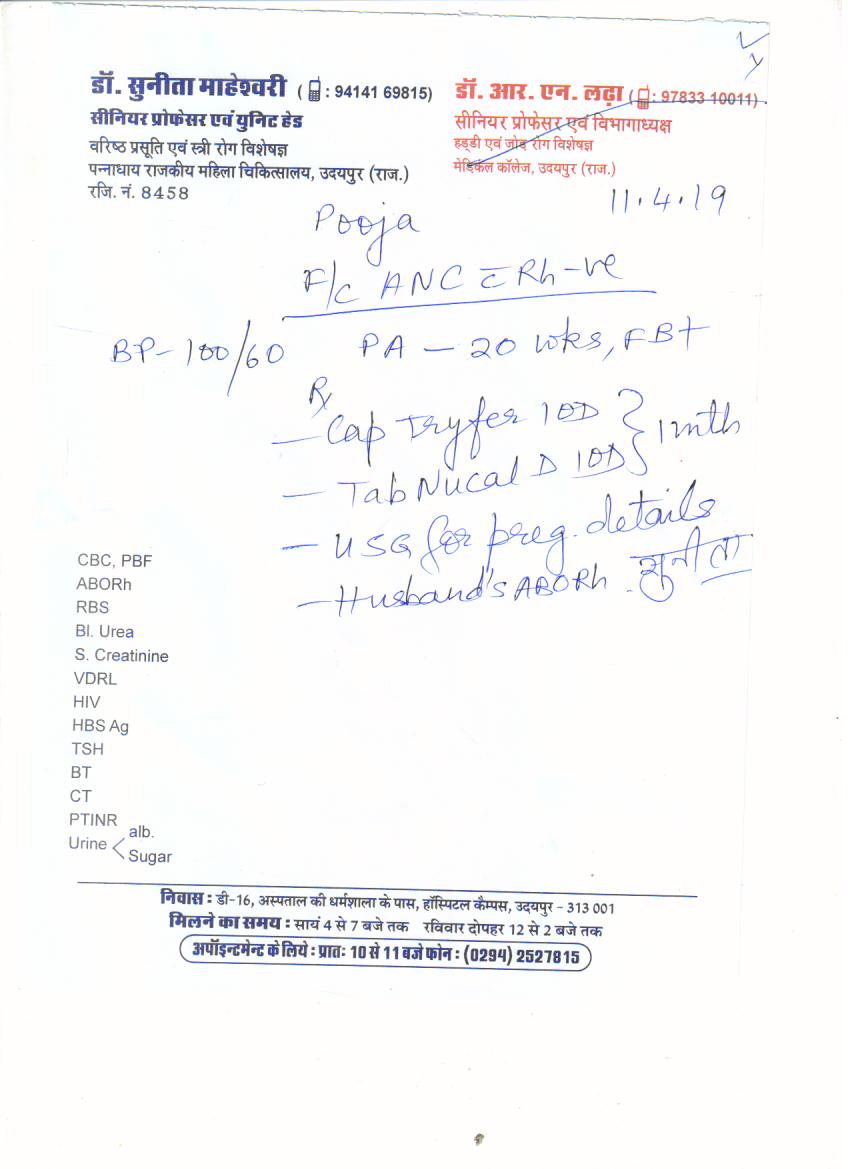 डॉ. सुनीता माहेश्वरी ( : 94141 69815)
सीनियर प्रोफेसर एवं युनिट हेड
वरिष्ठ प्रसूति एवं स्त्री रोग विशेषज्ञ
पन्नाधाय राजकीय महिला चिकित्सालय, उदयपुर (राज.)
रजि. नं. 8458
डॉ. आर. एन. लढ़ा ( : 97833 10011)
सीनियर प्रोफेसर एवं विभागाध्यक्ष
हड्डी एवं जोड़ रोग विशेषज्ञ
मेडिकल कॉलेज, उदयपुर (राज.)
11.4.19
Pooja
F/c ANC c̄ Rh -ve
BP- 100/60 PA - 20 wks, FB+
Rx
- Cap Tryfer 1OD } 1 mth
- Tab Nucal D 1OD
- USG for preg. details
- Husband's ABORh. सुनीता
CBC, PBF
ABORh
RBS
Bl. Urea
S. Creatinine
VDRL
HIV
HBS Ag
TSH
BT
CT
PTINR
Urine < alb.
Sugar
निवास : डी-16, अस्पताल की धर्मशाला के पास, हॉस्पिटल कैम्पस, उदयपुर - 313 001
मिलने का समय : सायं 4 से 7 बजे तक रविवार दोपहर 12 से 2 बजे तक
अपॉइन्टमेन्ट के लिये : प्रातः 10 से 11 बजे फोन : (0294) 2527815